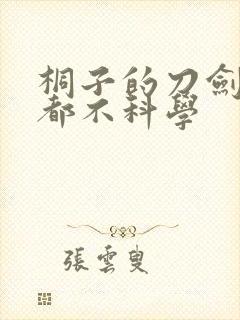 桐子的刀劍
都不科學
張雲叟